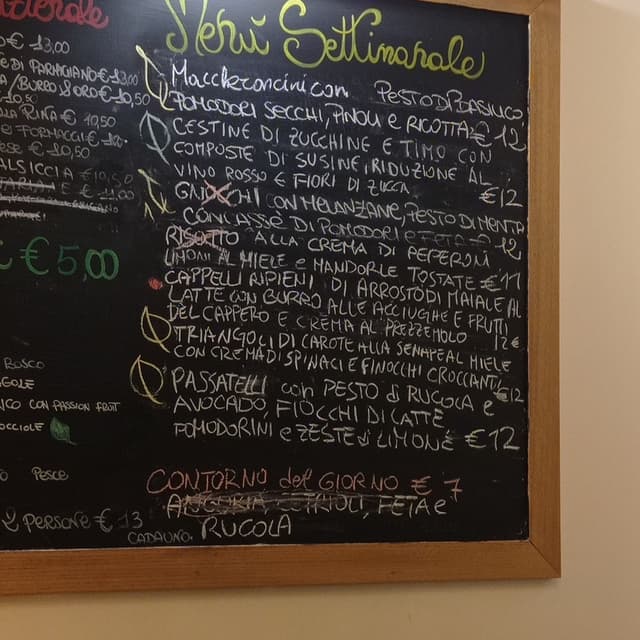 € 13,00
DI PARMIGIANO € 13,00
/BURRO S'ORO € 10,50
10,50
ALLA RINA € 10,50
FORMAGGI € 10
ESE € 10,50
ALSICCIA € 10,50
€ 11,00
€ 5,00
BOSCO
GOLE
ICO CON PASSION FRUIT
OCCIOLE
PESCE
2 PERSONE € 13
CADAUNO
Menù Settimanale
Maccheroncini con PESTO DI BASILICO
POMODORI SECCHI, PINOLI e RICOTTA € 12
CESTINE DI ZUCCHINE E TIMO CON
COMPOSTE DI SUSINE, RIDUZIONE AL
VINO ROSSO E FIORI DI ZUCCA €12
GNOCCHI CON MELANZANE, PESTO DI MENTA
CONCASSÈ DI POMODORI e FETA € 12
RISOTTO ALLA CREMA DI PEPERONI
LIMONI AL MIELE e MANDORLE TOSTATE €11
CAPPELLI RIPIENI DI ARROSTO DI MAIALE AL
LATTE CON BURRO ALLE ACCIUGHE E FRUTTI
DEL CAPPERO E CREMA AL PREZZEMOLO 12€
TRIANGOLI DI CAROTE ALLA SENAPE AL MIELE
CON CREMA DI SPINACI E FINOCCHI CROCCANTI €12
PASSATELLI con PESTO di RUCOLA e
AVOCADO, FIOCCHI DI LATTE
POMODORINI e ZESTE di LIMONE €12
CONTORNO del GIORNO € 7
ANGURIA CETRIOLI, FETA e
RUCOLA